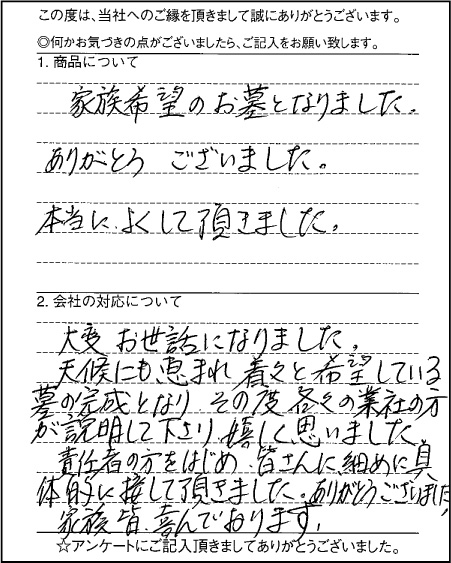 この度は、当社へのご縁を頂きまして誠にありがとうございます。
◎何かお気づきの点がございましたら、ご記入をお願い致します。
1. 商品について
家族希望のお墓となりました。
ありがとう ございました。
本当に、よくして頂きました。
2. 会社の対応について
大変 お世話になりました。
天候にも、恵まれ 着々と希望している
墓の完成となり その度 各々の業社の方
が説明して下さり 嬉しく思いました。
責任者の方をはじめ、皆さんに、細めに具
体的に接して頂きました。ありがとうございました、
家族皆、喜んでおります、
☆アンケートにご記入頂きましてありがとうございました。